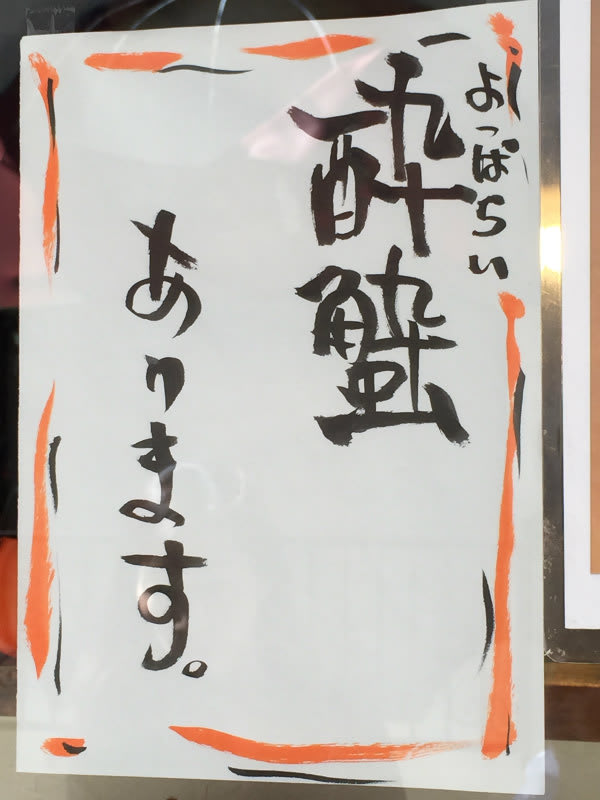 よっぱらい
酔蟹
あります。